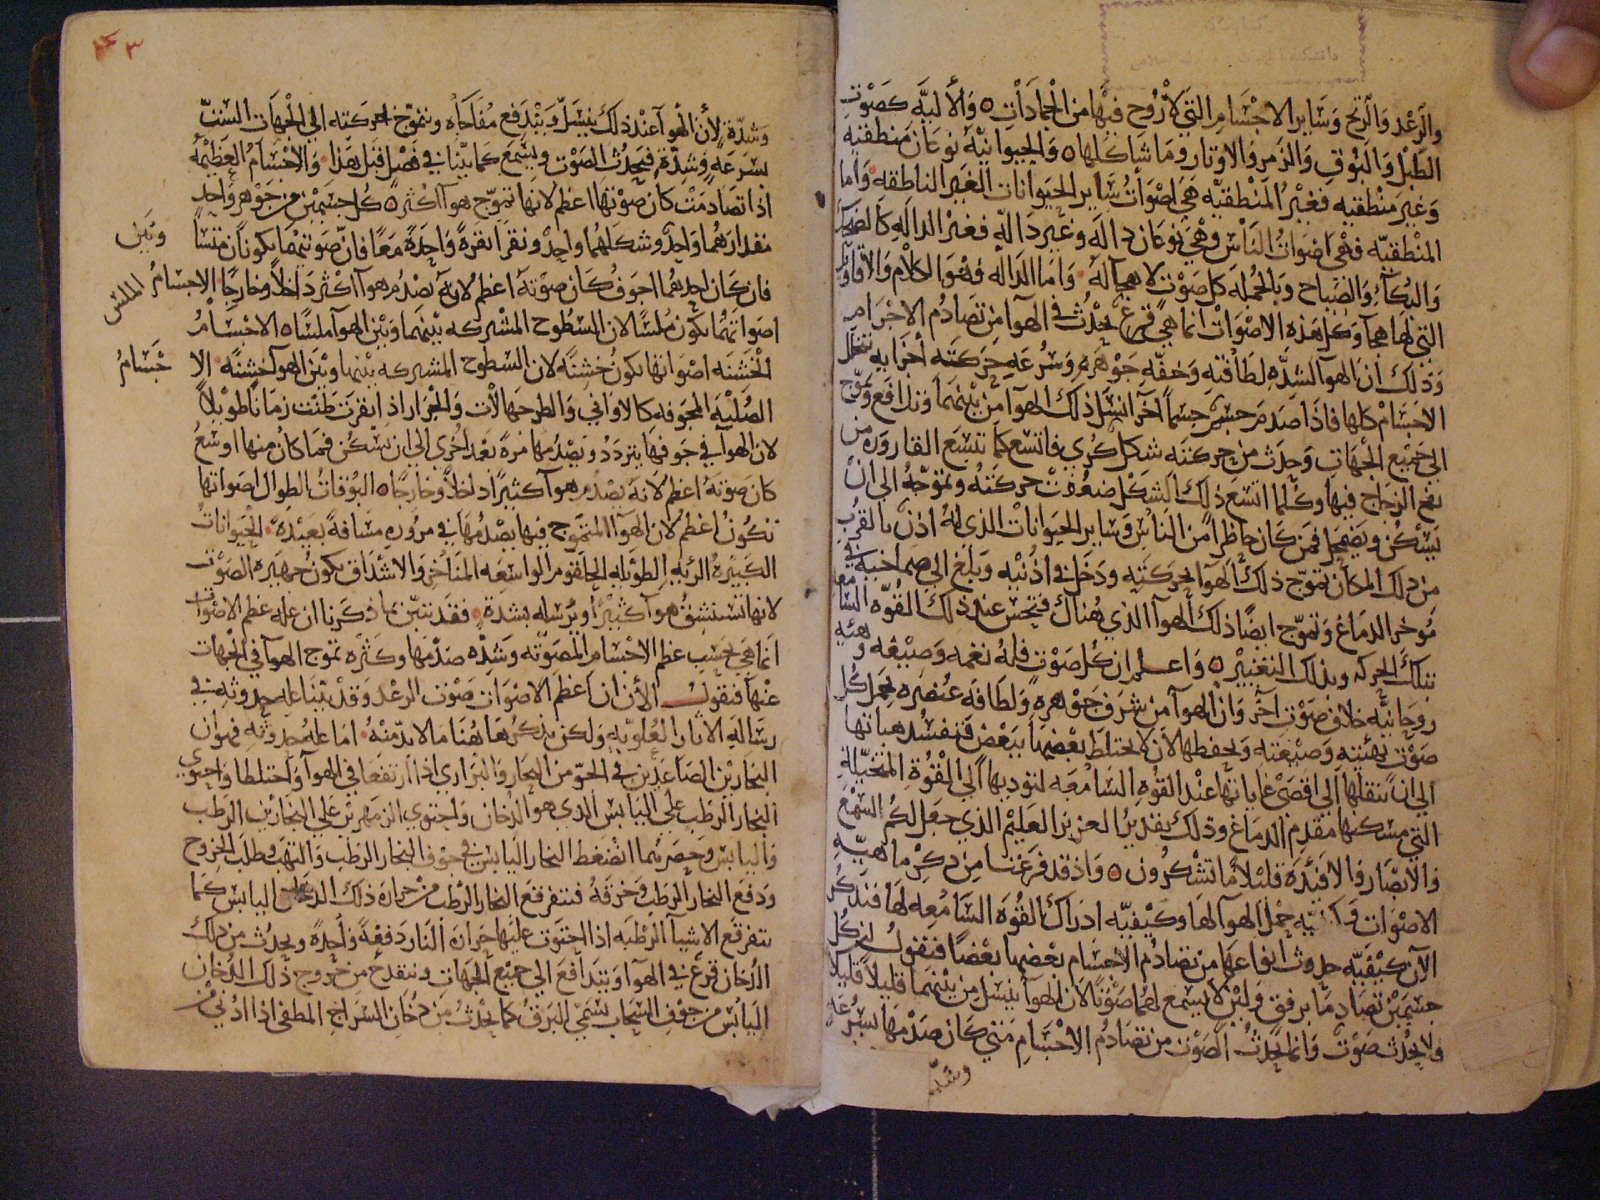 والرعد والريح وساير الاجسام التي لا روح فيها من الجمادات ٥ والآليه كصوت
الطبل والبوق والزمر والاوتار وما شاكلها ٥ والحيوانية نوعان منطقيه
وغير منطقيه فغير المنطقيه هي اصوات ساير الحيوانات الغير الناطقه واما
المنطقيه فهي اصوات الناس وهي نوعان داله وغير دالة فغير الداله كالضحك
والبكاء والصياح وبالجمله كل صوت لا هجا له واما الداله فهو الكلام والاقاويل
التي لها هجا وكل هذه الاصوات انما هي قرع يحدث في الهوا من تصادم الاجرام
وذلك ان الهوا لشدة لطافته وخفة جوهره وسرعه حركته اجزايه يتخلل
الاجسام كلها فاذا صدم جسم جسما آخر انسل ذلك الهوا من بينهما وتدافع وتموج
الى جميع الجهات وحدث من حركته شكل كري فاتسع كما تتسع القاروره من
نفخ الزجاج فيها وكلما اتسع ذلك الشكل ضعفت حركته وتموجه الى ان
يسكن ويضمحل فمن كان حاظرا من الناس وساير الحيوانات الذي له اذن بالقرب
من ذلك المكان تموج ذلك الهوا بحركته ودخل في اذنيه وبلغ الى صماخيه في
موخر الدماغ وتموج ايضا ذلك الهوا الذي هناك فتحس عند ذلك القوة السامعه
بتلك الحركه وبذلك التغيير ٥ واعلم ان كل صوت فله نغمه وصيغه وهيئه
روحانيه خلاف صوت آخر وان الهوا من شرف جوهره ولطافه عنصره يحمل كل
صوت بهيئته وصيغته ويحفظها لان لا يختلط بعضها ببعض فتفسد هياتها
الى ان تنقلها الى اقصى غاياتها عند القوه السامعه لتوديها الى القوة المتخيلة
التي مسكنها مقدم الدماغ وذلك تقدير العزيز العليم الذي جعل لكم السمع
والابصار والافئدة قليلا ما تشكرون ٥ واذ قد فرغنا من ذكر ماهية
الاصوات وكيفيه حمل الهوا لها وكيفيه ادراك القوة السامعه لها فنذكر
الآن كيفيه حدوث انواعها من تصادم الاجسام بعضها بعضا فنقول ان كل
جسمين تصادما برفق ولين لا يسمع لهما صوتا لان الهوا ينسل من بينهما قليلا قليلا
ولا يحدث صوت وانما يحدث الصوت من تصادم الاجسام متى كان صدمها بسرعة
وشدة
٣
وشدة لان الهوا عند ذلك ينسل ويندفع مفاجأه ويتموج بحركته الى الجهات الست
بسرعة وشدة فيحدث الصوت ويسمع كما بينا في فصل قبل هذا والاجسام العظيمة
اذا تصادمت كان صوتها اعظم لانها تموج هوا اكثر ٥ كل جسمين من جوهر واحد
مقدارهما واحد وشكلهما واحد ونقرا نقرة واحدة معا فان صوتيهما يكونان متسا
ويين
فان كان احدهما اجوف كان صوته اعظم لانه يصدم هوا اكثر داخلا وخارجا الاجسام الملس
اصواتهما تكون ملسا لان السطوح المشتركه بينهما وبين الهوا ملسا ٥ الاجسام
الخشنه اصواتها تكون خشنة لان السطوح المشتركه بينها وبين الهوا خشنه الا
جسام
الصلبه المجوفه كالاواني والطرجهالات والجرار اذا نقرت طنت زمانا طويلا
لان الهوا في جوفها يتردد ويصدمها مرة بعد اخرى الى ان يسكن فما كان منها اوسع
كان صوته اعظم لانه يصدم هوا كثيرا داخلا وخارجا ٥ البوقات الطوال اصواتها
تكون اعظم لان الهوا المتموج فيها يصدمها في مروره مسافة بعيدة الحيوانات
الكبيرة الريه الطويله الحلقوم الواسعه المناخر والاشداق يكون جهيرة الصوت
لانها تستنشق هوا كثيرا وترسله بشدة فقد تبين بما ذكرنا ان علة عظم الاصوات
انما هي بحسب عظم الاجسام المصوته وشدة صدمها وكثره تموج الهوا في الجهات
عنها فنقول الآن ان اعظم الاصوات صوت الرعد وقد بينا علة حدوثه في
رسالة الاثار العلويه ولكن نذكر هاهنا ما لا بد منه اما علة حدوثه فهو ان
البخارين الصاعدين في الجو من البحار والبراري اذا ارتفعا في الهوا واختلطا واحتوى
البخار الرطب على اليابس الذي هو الدخان واحتوى الزمهرير على البخارين الرطب
واليابس وحصرهما انضغط البخار اليابس في جوف البخار الرطب والتهب وطلب الخروج
ودفع البخار الرطب وخرقه فتفرقع البخار الرطب من حرارة ذلك الدخان اليابس كما
تتفرقع الاشيا الرطبه اذا احتوت عليها حرارة النار دفعة واحدة ويحدث من ذلك
الدخان قرع في الهوا ويتدافع الى جميع الجهات وينقدح من خروج ذلك الدخان
اليابس من جوف السحاب يسمى البرق كما يحدث من دخان السراج المطفى اذا ادني من